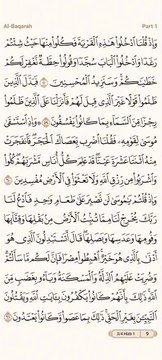 Al-Baqarah
Part 1
وَإِذْ قُلْنَا ٱدْخُلُوا۟ هَٰذِهِ ٱلْقَرْيَةَ فَكُلُوا۟ مِنْهَا حَيْثُ شِئْتُمْ
رَغَدًا وَٱدْخُلُوا۟ ٱلْبَابَ سُجَّدًا وَقُولُوا۟ حِطَّةٌ نَّغْفِرْ لَكُمْ
خَطَٰيَٰكُمْ وَسَنَزِيدُ ٱلْمُحْسِنِينَ ٥٨ فَبَدَّلَ ٱلَّذِينَ
ظَلَمُوا۟ قَوْلًا غَيْرَ ٱلَّذِى قِيلَ لَهُمْ فَأَنزَلْنَا عَلَى ٱلَّذِينَ ظَلَمُوا۟
رِجْزًا مِّنَ ٱلسَّمَآءِ بِمَا كَانُوا۟ يَفْسُقُونَ ٥٩ وَإِذِ ٱسْتَسْقَىٰ
مُوسَىٰ لِقَوْمِهِۦ فَقُلْنَا ٱضْرِب بِّعَصَاكَ ٱلْحَجَرَ فَٱنفَجَرَتْ
مِنْهُ ٱثْنَتَا عَشْرَةَ عَيْنًا قَدْ عَلِمَ كُلُّ أُنَاسٍ مَّشْرَبَهُمْ كُلُوا۟
وَٱشْرَبُوا۟ مِن رِّزْقِ ٱللَّهِ وَلَا تَعْثَوْا۟ فِى ٱلْأَرْضِ مُفْسِدِينَ ٦٠
وَإِذْ قُلْتُمْ يَٰمُوسَىٰ لَن نَّصْبِرَ عَلَىٰ طَعَامٍ وَٰحِدٍ فَٱدْعُ لَنَا
رَبَّكَ يُخْرِجْ لَنَا مِمَّا تُنۢبِتُ ٱلْأَرْضُ مِنۢ بَقْلِهَا وَقِثَّآئِهَا
وَفُومِهَا وَعَدَسِهَا وَبَصَلِهَا قَالَ أَتَسْتَبْدِلُونَ ٱلَّذِى هُوَ
أَدْنَىٰ بِٱلَّذِى هُوَ خَيْرٌ ٱهْبِطُوا۟ مِصْرًا فَإِنَّ لَكُم مَّا سَأَلْتُمْ
وَضُرِبَتْ عَلَيْهِمُ ٱلذِّلَّةُ وَٱلْمَسْكَنَةُ وَبَآءُو بِغَضَبٍ مِّنَ
ٱللَّهِ ذَٰلِكَ بِأَنَّهُمْ كَانُوا۟ يَكْفُرُونَ بِـَٔايَٰتِ ٱللَّهِ وَيَقْتُلُونَ
ٱلنَّبِيِّـۧنَ بِغَيْرِ ٱلْحَقِّ ذَٰلِكَ بِمَا عَصَوا۟ وَّكَانُوا۟ يَعْتَدُونَ ٦١
9